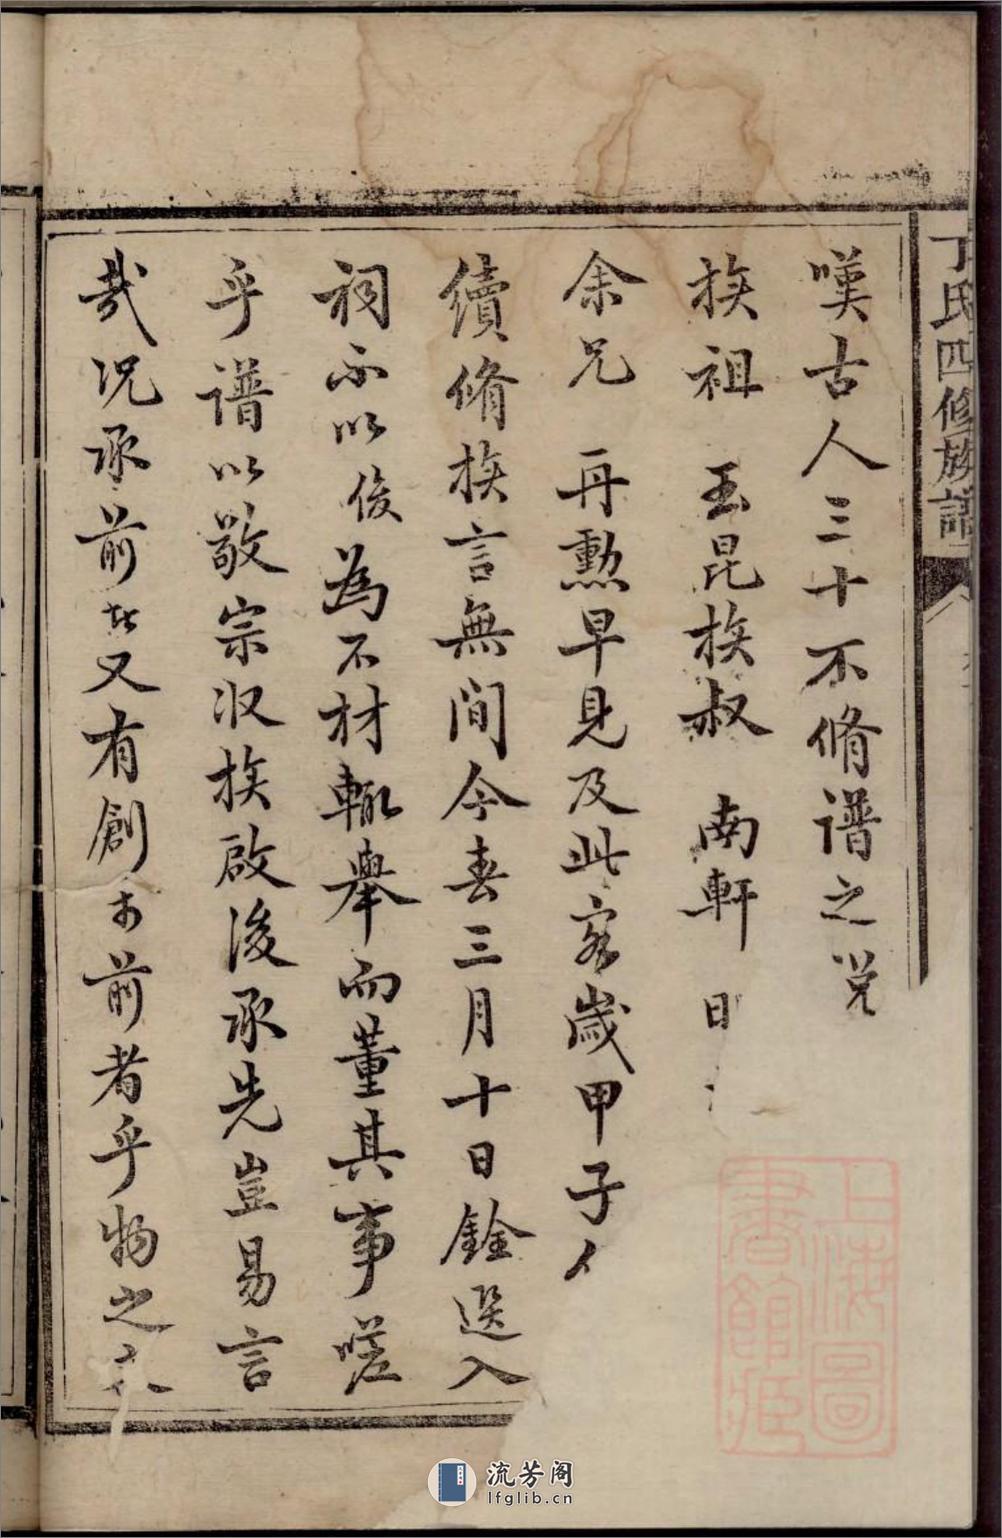 丁氏四修族譜
嘆古人三十不脩譜之説
族祖 玉昆族叔 南軒 日
余兄 再勲早見及此客歲甲子
續脩族言無間今春三月十日銓選入
祠不以俊為不材輒舉而董其事嗟
乎譜以敬宗収族啟後承先豈易言
哉况承前者又有創於前者乎物之
上海圖書館藏
流芳阁
lfglib.cn